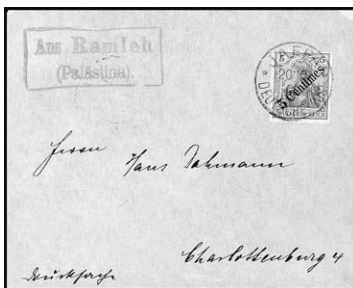 Aus Ramleh
(Palästina).
JAFFA
5 Centimes
Herrn
Hans Dahmann
Charlottenburg 4
Drucksache